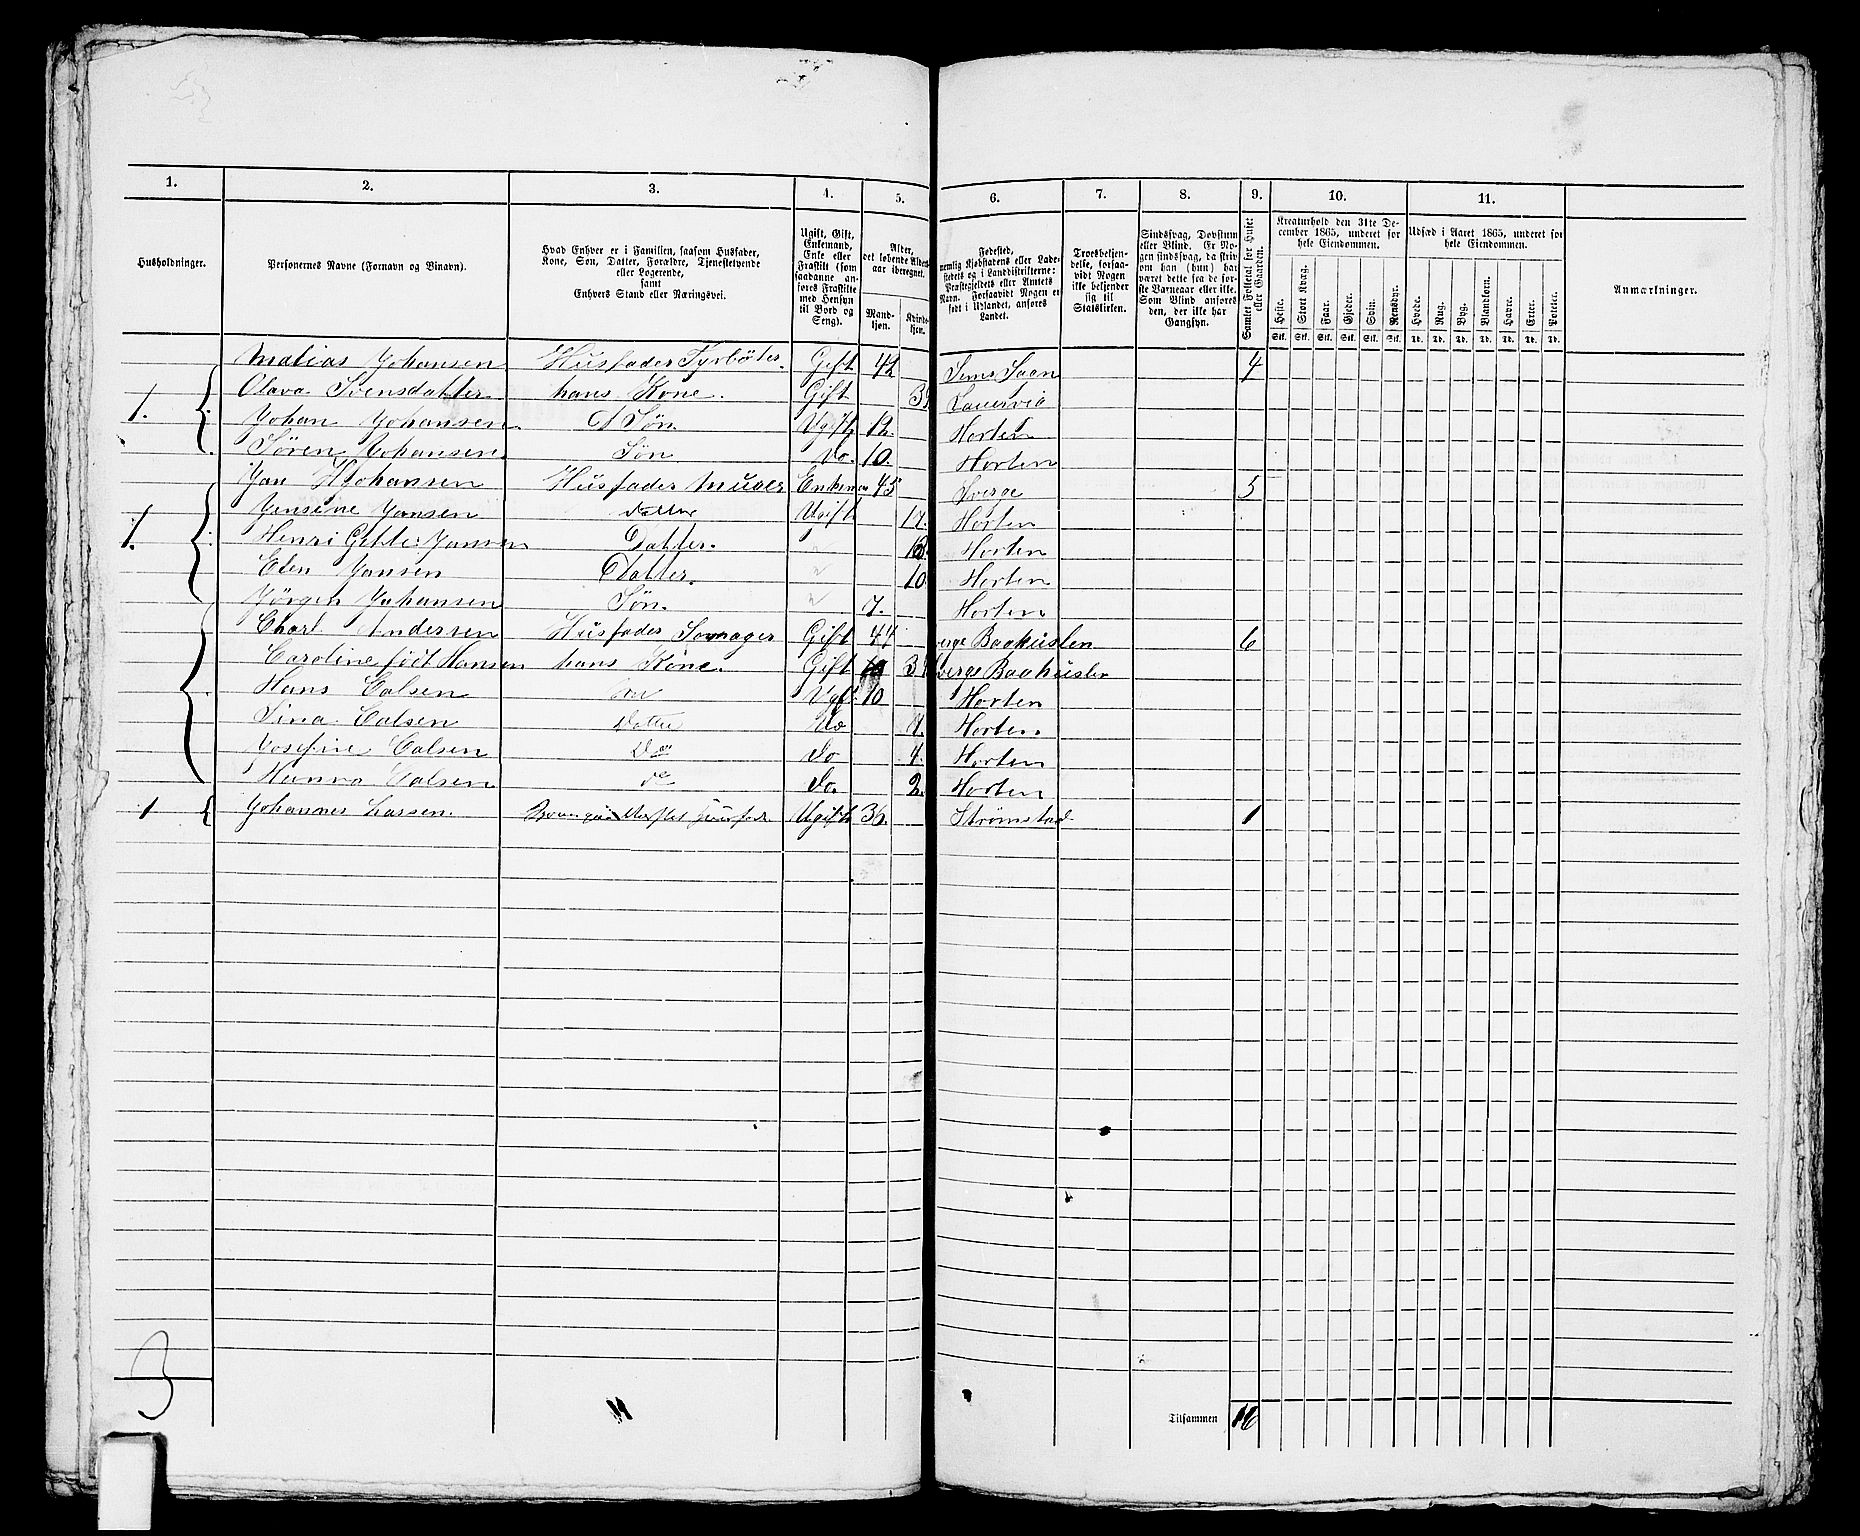 1. 2. 3. 4. 5. 6. 7. 8. 9. 10. 11.
Husholdninger.
Personernes Navne (Fornavn og Vinavn).
Hvad Enhver er i Familien, saasom Husfader,
Kone, Søn, Datter, Forældre, Tjenestetyende
eller Logerende,
samt
Enhvers Stand eller Næringsvei.
Ugift, Gift,
Enkemand,
Enke eller
Fraskilt (som
saadanne an-
føres Fraskilte
med Hensyn
til Bord og
Seng).
Alder,
det løbende Alders-
aar iberegnet.
Mand-
kjøn.
Kvinde-
kjøn.
Fødested,
nemlig Kjøbstadens eller Lade-
stedets og i Landdistrikterne:
Præstegjeldets eller Amtets
Navn. Forsaavidt Nogen er
født i Udlandet, anføres
Landet.
Troesbekjen-
delse, forsaa-
vidt Nogen
ikke bekjender
sig til
Statskirken.
Sindssvag, Døvstum
eller Blind. Er No-
gen sindssvag, da skriv
om han (hun) har
været dette fra de før-
ste Barneaar eller ikke.
Som Blind anføres
den, der ikke har
Gangsyn.
Samlet Folketal for Huset
eller Gaarden.
Kreaturhold den 31te De-
cember 1865, underet for
hele Eiendommen.
Heste. Stort Kvæg. Faar. Gjeder. Svin. Rensdyr.
Stk. Stk. Stk. Stk. Stk. Stk.
Udsæd i Aaret 1865, underet for
hele Eiendommen.
Hvede. Rug. Byg. Blandkorn. Havre. Erter. Poteter.
Td. Td. Td. Td. Td. Td. Td.
Anmærkninger.
Matias Johansen Husfader Fyrbøter Gift 42 Sems Saan 4
1. Olava Svensdatter hans Kone. Gift Laurvig
Johan Johansen Søn Ugift 12. Horten
Søren Johansen Søn Do. 10. Horten
Jan Johansen Husfader Murer Enkem 45 Sverge 5
Jensine Jansen datter Ugift 17. Horten
1. Henri Gitte Jansen Datter. Horten
Elen Jansen Datter. 10. Horten
Jørgen Johansen Søn. 7. Horten
Charl Andersen Husfader Gift 44 verge Baahuslen 6
Caroline født Hansen hans Kone. Gift verge Baahuslen
Hans Calsen Ugf. 10 Horten
Sina Calsen Datter Do Horten
Josefine Calsen Do Do 4. Horten
Hanna Calsen do Do. 2. Horten
1 Johannes Larsen. Ugift 36. Strømstad 1
3
Tilsammen 16